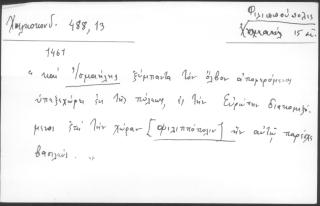 Χαλκοκονδ. 488, 13
Φιλιππούπολις
15 αἰ.
1461
" καὶ Ἰσμαήλης ξύμπαντα τὸν ὄλβον ἀπαγόμενος
ὑπεξεχώρει ἐκ τῆς πόλεως, ἐς τὴν Εὐρώπην διακομιζό-
μενος ἐπὶ τὴν χώραν [Φιλιππόπολιν] ἣν αὐτῷ παρέσχε
βασιλεύς. "